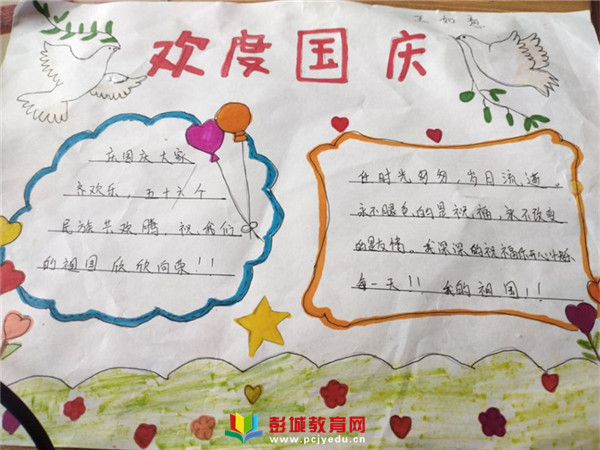 王如意
欢度国庆
庆国庆大家
齐欢乐，五十六个
民族共欢腾，祝我们
的祖国欣欣向荣！！
任时光匆匆，岁月流逝。
永不褪色的是祝福，永不改变
的是友情。我深深的祝福你开心快乐
每一天！！我的祖国！！
彭城教育网
www.pcjyedu.cn